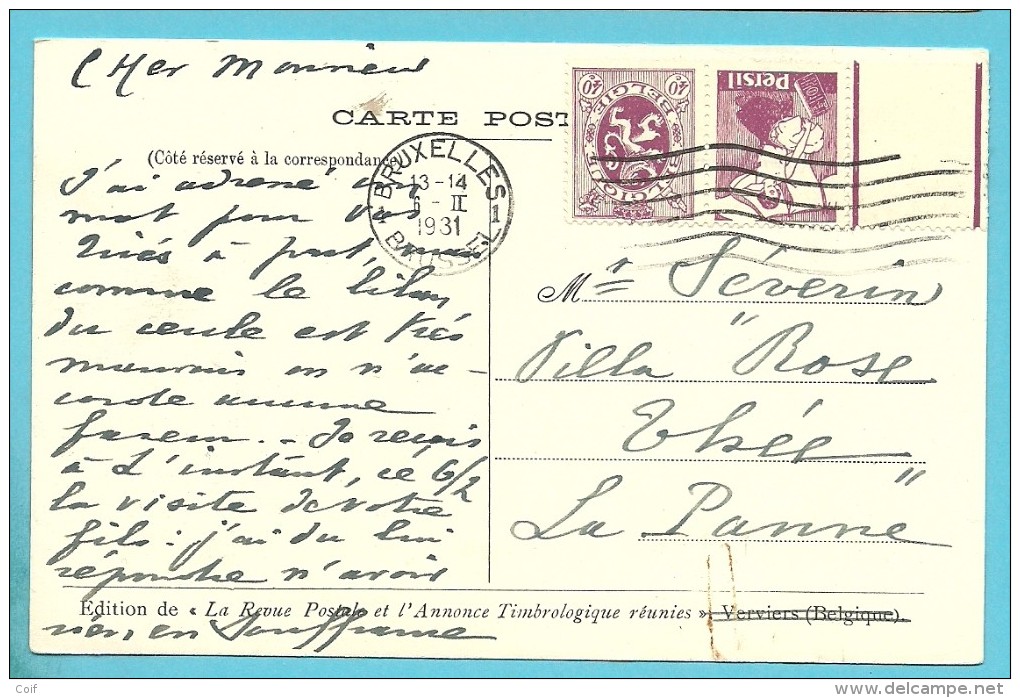 Cher Monsieur
CARTE POST
(Côté réservé à la correspondance)
J'ai adressé un
mot pour vos
à part,
comme le bilan
du cercle est très
mauvais on n'ac-
corde aucune
faveur. - Je reçois
à l'instant, ce 6/2
la visite de votre
fils : j'ai du lui
répondre n'avoir
rien en souffrance
BRUXELLES
1 1
13-14
6-II
1931
BRUSSEL
40 BELGIE 40
BELGIQUE
Persil
HENKEL
Mr Séverin
Villa "Rose
Thée"
La Panne
Édition de « La Revue Postale et l'Annonce Timbrologique réunies » Verviers (Belgique).
Coif
delcampe.net